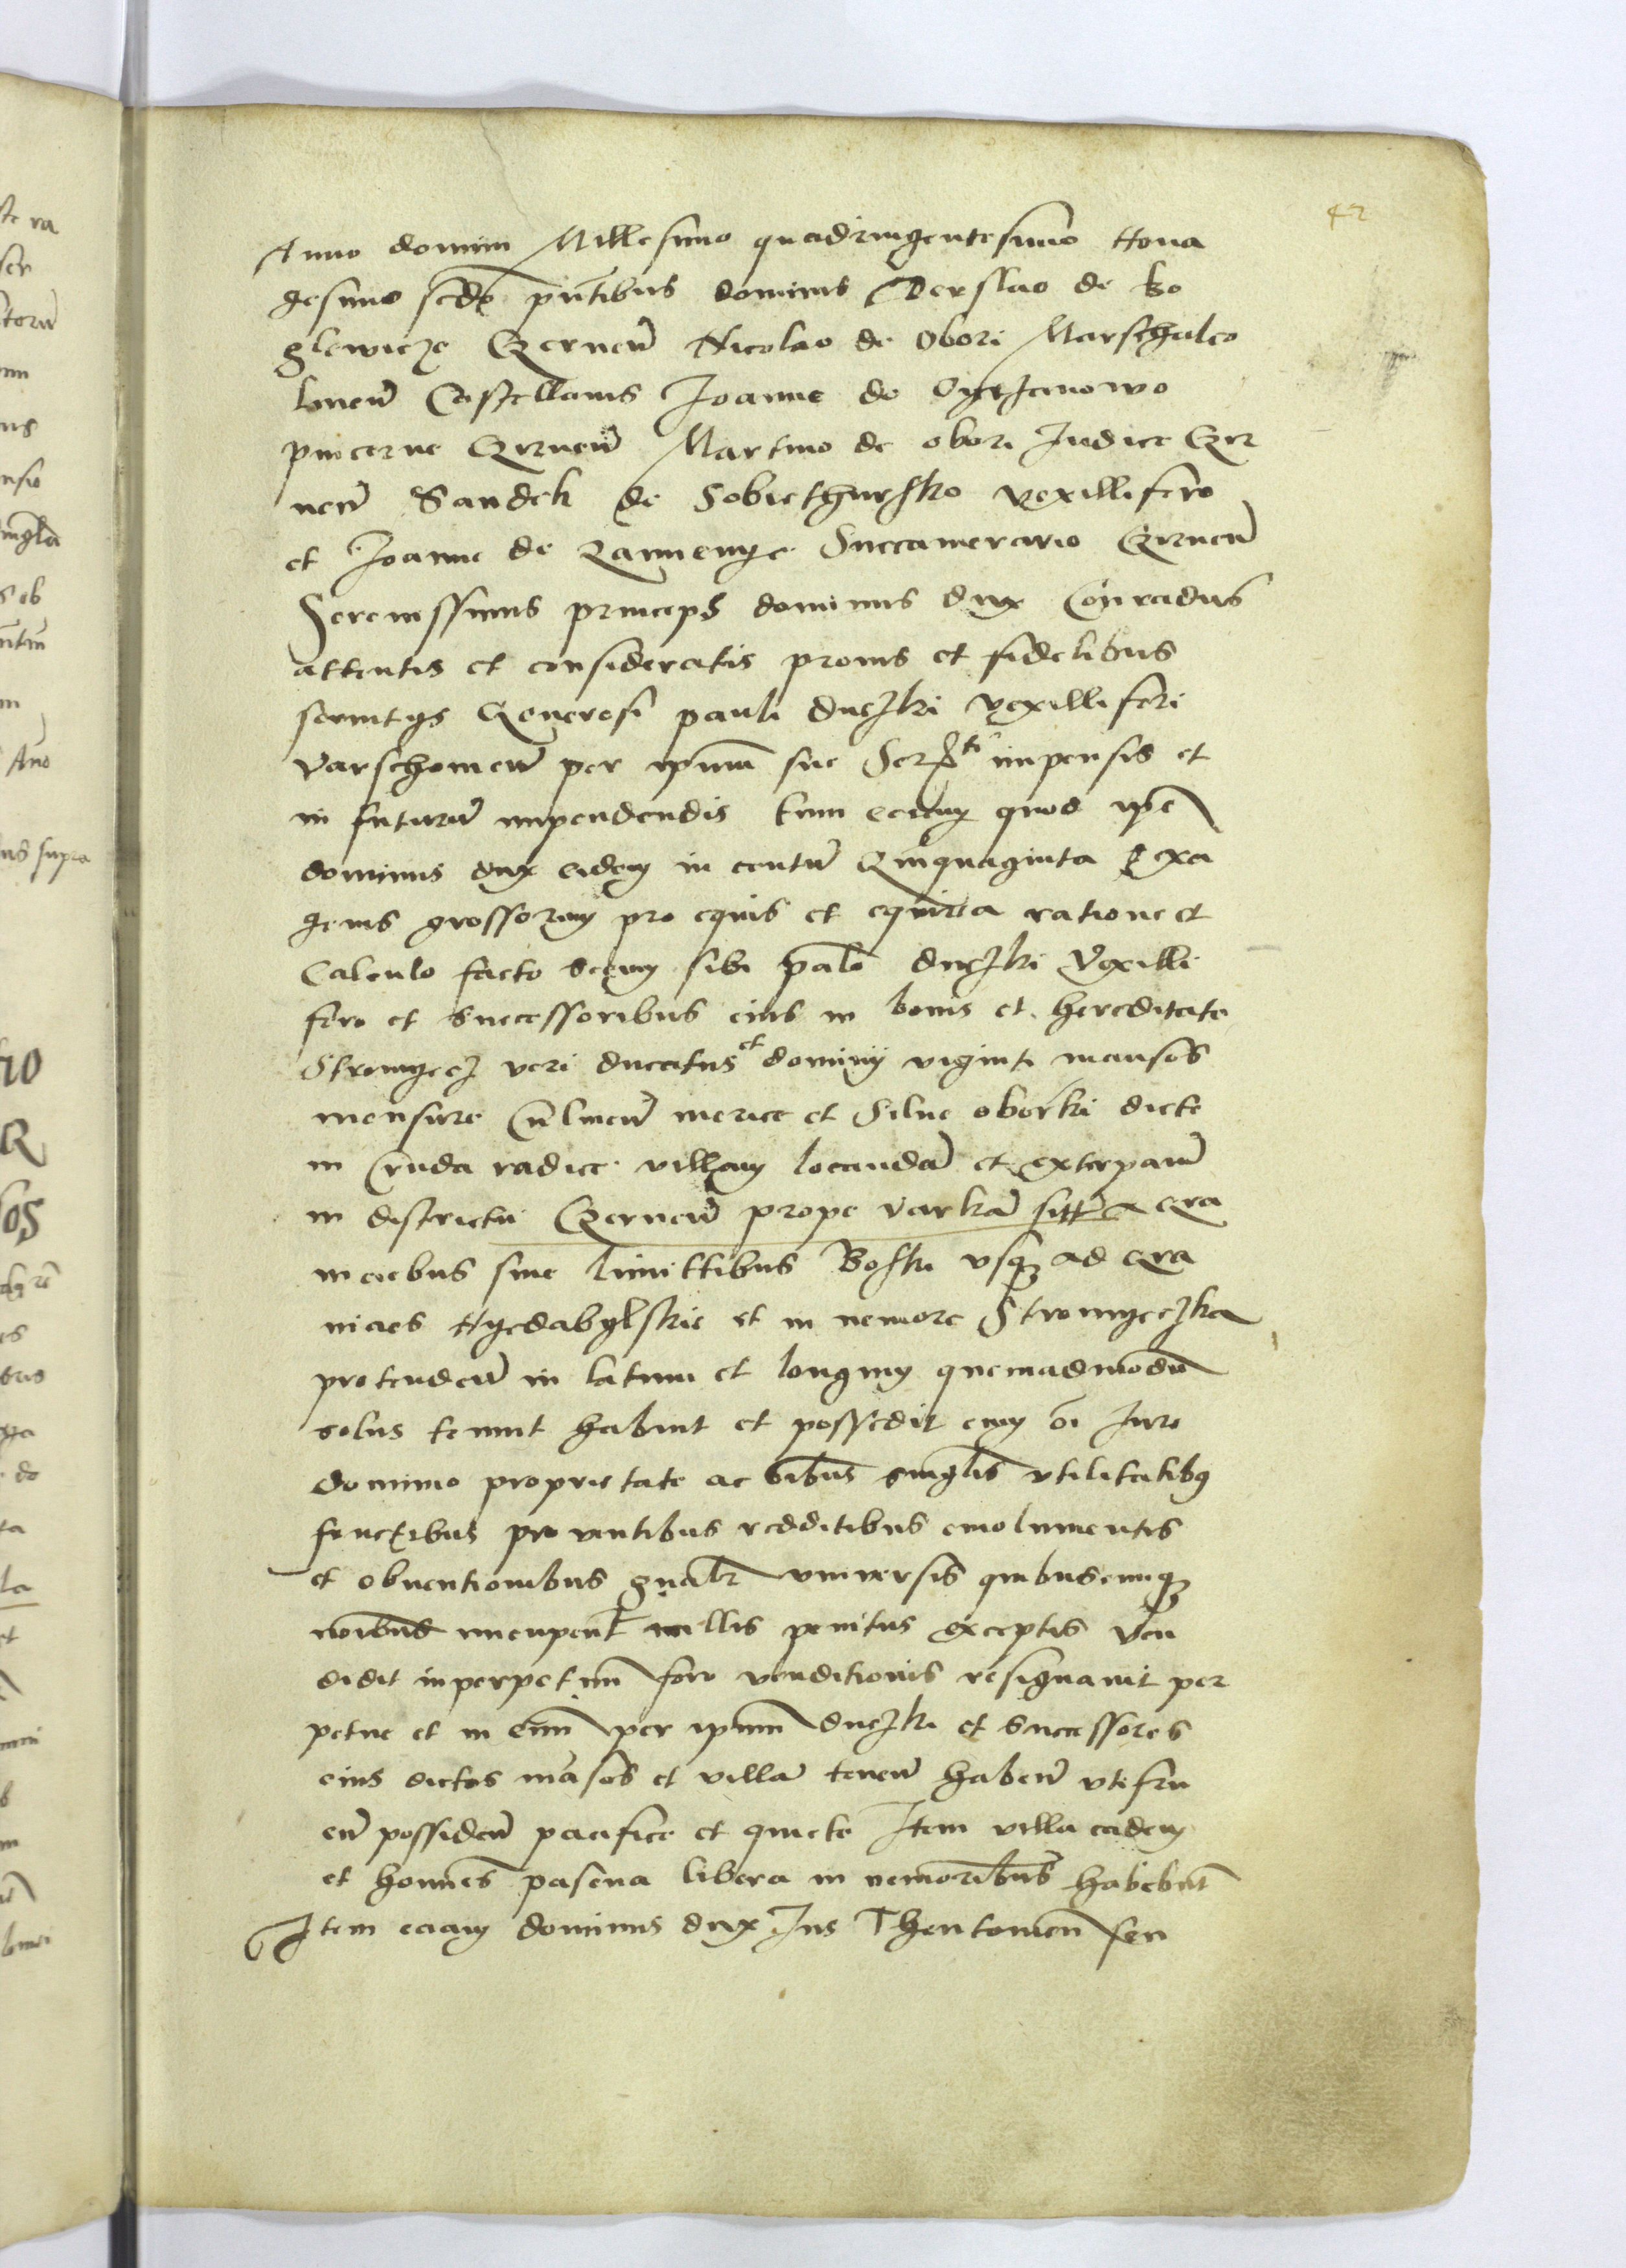 42
Anno domini Millesimo quadringentesimo Nona
gesimo scdo pntibus dominis Derslao de Bo
glewicze Czernen Nicolao de Obori Marschalco
Lonen Castellanis Joanne de
pincerne Czrnen Martino de obori Judice Czr
nen Sandek de Sobiethursko vexillifero
et Joanne de Succamerario Czrnen
Serenissimus princeps dominus dux Conradus
attentis et consideratis pronis et fidelibus
servitys Generosi pauli duczki vexilliferi
Varschomen per ipsum sue Ser impensis et
in futurum impendendis tum eciam quod ipse
dominus dux eidem in centum Quinquaginta Sexa
genis grossorum pro equis et ratione et
Calculo facto sibi palo duczki Vexilli
fero et successoribus eius in bonis et hereditate
Stromyecz veri ducatus et dominij viginti mansos
mensure Culmen merice et Silue oborki dicte
in Cruda radice villam locandam et
in districtu Czernen prope varkam sitt a Gra
niciebus sine limittibus Bosku usque ad Gra
nicies Nyedabylskie et in nemore Stromyeczka
protenden in latum et longum quemadmodum
solus tenuit habuit et possedit cum oi Jure
dominio proprietate ac oibus singlis vtilitatibus
fructibus proventibus redditibus emolumentis
et obventionibus gnalr vniversis quibuscumque
noibus nuncupent nullis penitus exceptis Ven
didit inperpetuum foro venditionis resignavit per
petue et in eum per ipsum duczki et successores
eius dictos mansos et villam tenen haben vtifru
en possiden pacifice et quiete Item villa eadem
et homines pascua libera in nemoribus habebunt
Item eciam dominus dux Jus Theutonicum seu